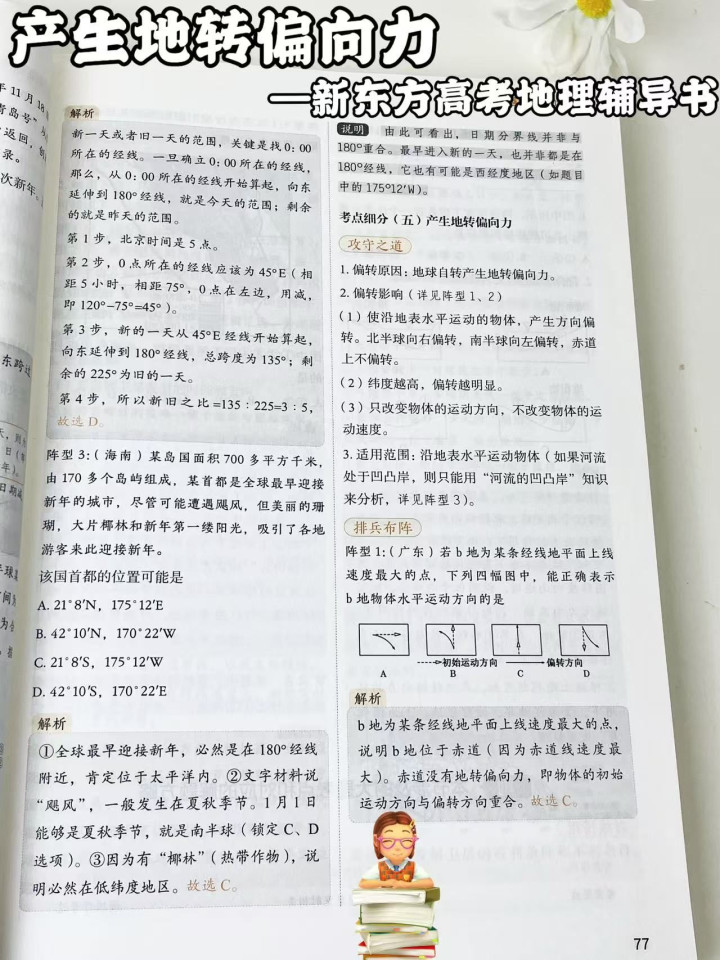 产生地转偏向力
—新东方高考地理辅导书
年11月18
青岛号”
返回，
录。
次新年。
东跨过
解析
新一天或者旧一天的范围，关键是找0:00
所在的经线。一旦确立0:00所在的经线，
那么，从0:00所在的经线开始算起，向东
延伸到180°经线，就是今天的范围；剩余
的就是昨天的范围。
第1步，北京时间是5点。
第2步，0点所在的经线应该为45°E（相
距5小时，相距75°，0点在左边，用减，
即120°-75°=45°）。
第3步，新的一天从45°E经线开始算起，
向东延伸到180°经线，总跨度为135°；剩
余的225°为旧的一天。
第4步，所以新旧之比=135：225=3：5，
故选D。
阵型3:（海南）某岛国面积700多平方千米，
由170多个岛屿组成，某首都是全球最早迎接
新年的城市，尽管可能遭遇飓风，但美丽的珊
瑚，大片椰林和新年第一缕阳光，吸引了各地
游客来此迎接新年。
该国首都的位置可能是
A. 21°8′N，175°12′E
B. 42°10′N，170°22′W
C. 21°8′S，175°12′W
D. 42°10′S，170°22′E
解析
①全球最早迎接新年，必然是在180°经线
附近，肯定位于太平洋内。②文字材料说
“飓风”，一般发生在夏秋季节。1月1日
能够是夏秋季节，就是南半球（锁定C、D
选项）。③因为有“椰林”（热带作物），说
明必然在低纬度地区。故选C。
说明 由此可看出，日期分界线并非与
180°重合。最早进入新的一天，也并非都是在
180°经线，它也有可能是西经度地区（如题目
中的175°12′W）。
考点细分（五）产生地转偏向力
攻守之道
1.偏转原因：地球自转产生地转偏向力。
2.偏转影响（详见阵型1、2）
（1）使沿地表水平运动的物体，产生方向偏
转。北半球向右偏转，南半球向左偏转，赤道
上不偏转。
（2）纬度越高，偏转越明显。
（3）只改变物体的运动方向，不改变物体的运
动速度。
3.适用范围：沿地表水平运动物体（如果河流
处于凹凸岸，则只能用“河流的凹凸岸”知识
来分析，详见阵型3）。
排兵布阵
阵型1:（广东）若b地为某条经线地平面上线
速度最大的点，下列四幅图中，能正确表示
b地物体水平运动方向的是
初始运动方向 偏转方向
A B C D
解析
b地为某条经线地平面上线速度最大的点，
说明b地位于赤道（因为赤道线速度最
大）。赤道没有地转偏向力，即物体的初始
运动方向与偏转方向重合。故选C。
77